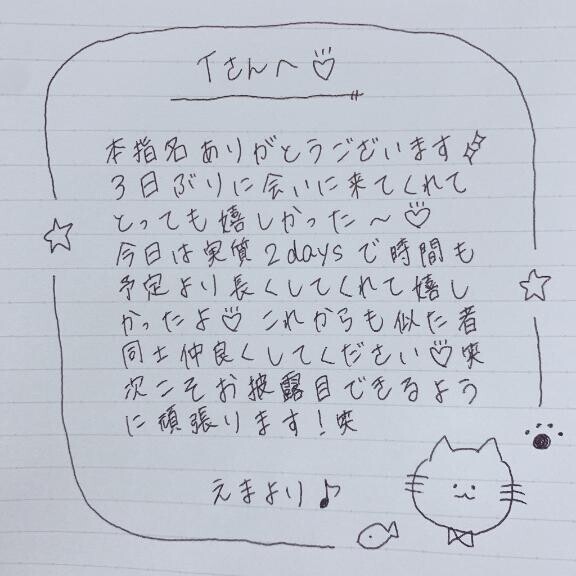 Tさんへ♡
本指名ありがとうございます
3日ぶりに会いに来てくれて
とっても嬉しかった〜♡
今日は実質2daysで時間も
予定より長くしてくれて嬉し
かったよ♡これからも似た者
同士仲良くしてください♡笑
次こそお披露目できるよう
に頑張ります!笑
えまより♪